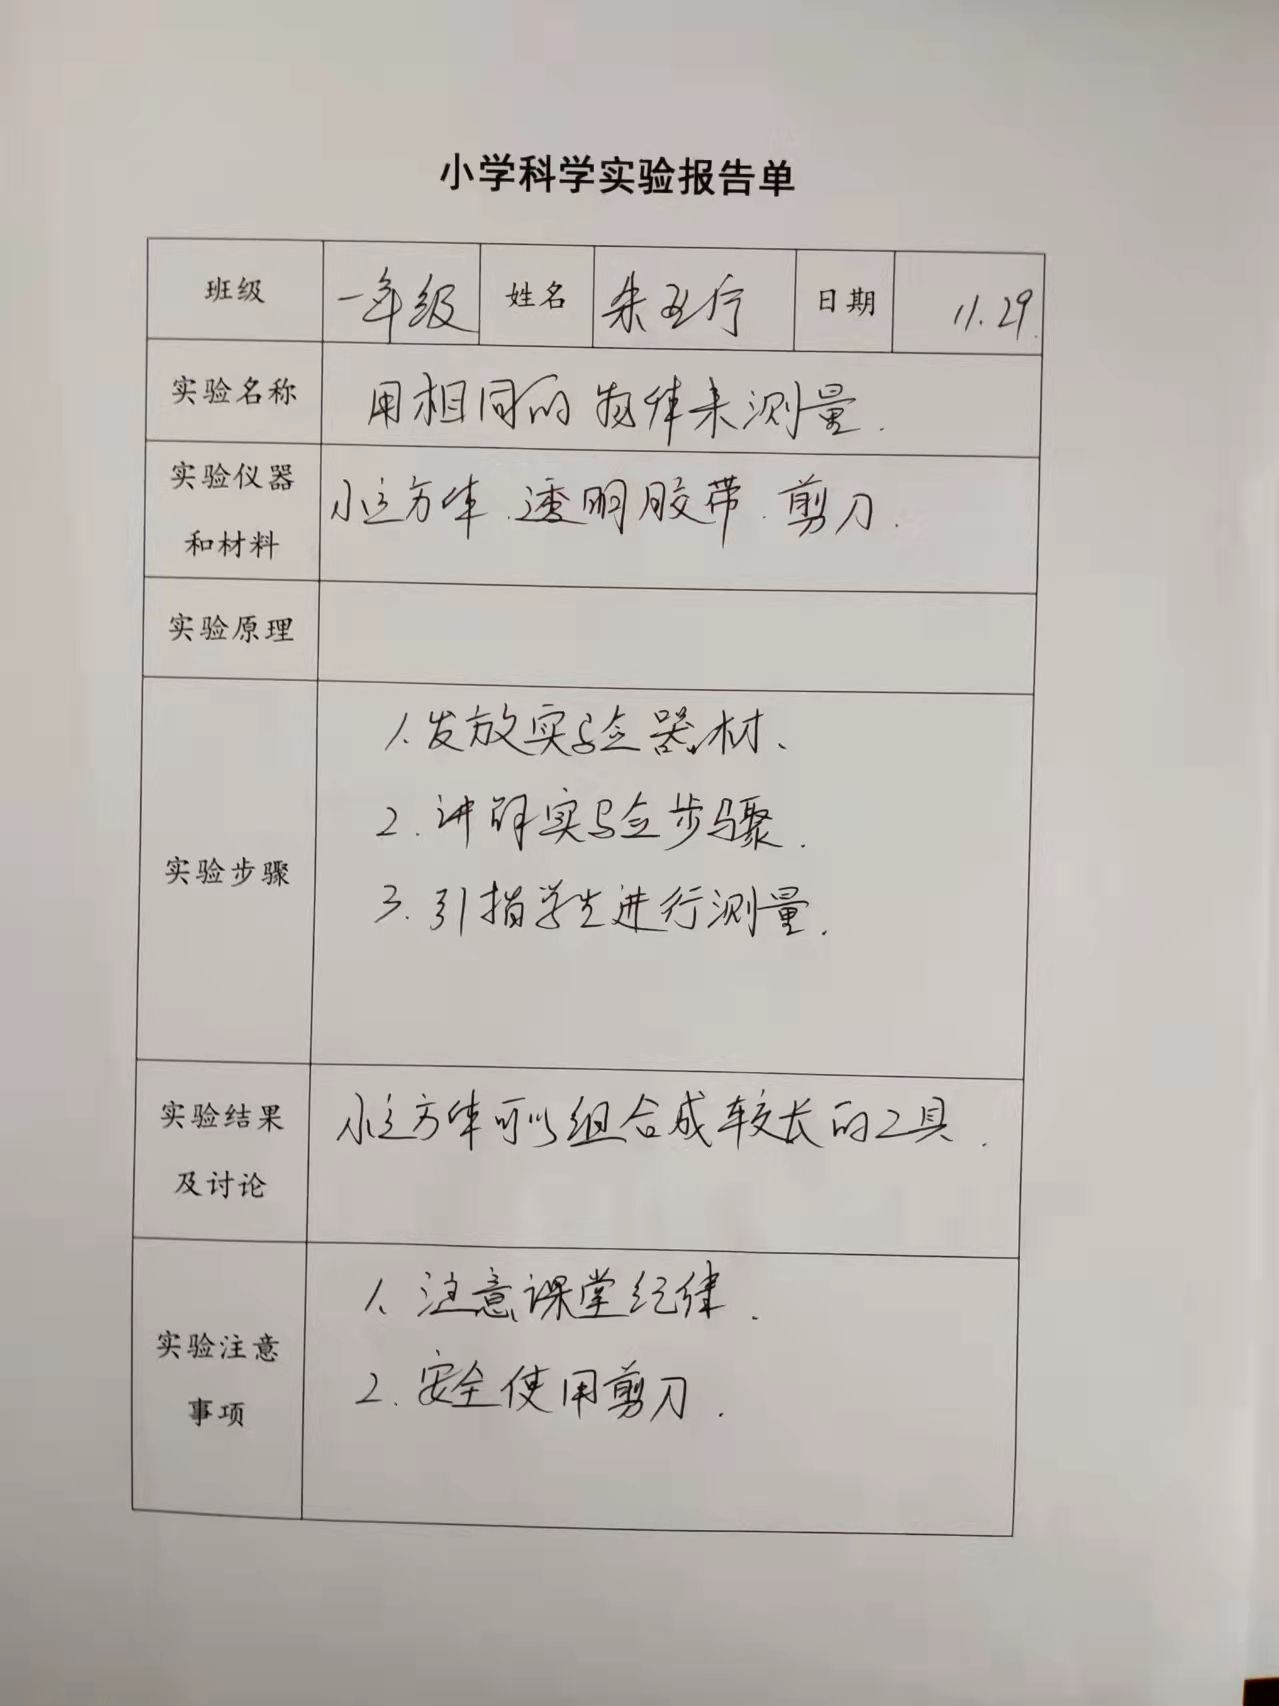 小学科学实验报告单
班级 一年级 姓名 朱五行 日期 11.29.
实验名称 用相同的物体来测量.
实验仪器
和材料
小立方体.透明胶带.剪刀.
实验原理
实验步骤
1.发放实验器材、
2.讲解实验步骤.
3.引指学生进行测量.
实验结果
及讨论
小立方体可以组合成较长的工具.
实验注意
事项
1.注意课堂纪律.
2.安全使用剪刀.